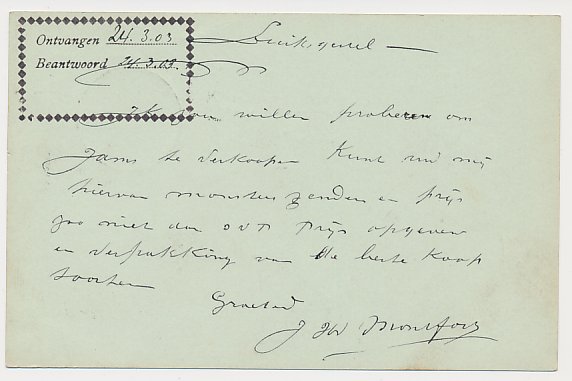 Ontvangen 24.3.03
Beantwoord 24.3.03
Luiksgestel
Ik zou willen proberen om
Jams te verkoopen Kunt U mij
hiervan monsters zenden en prijs
zoo niet dan prijs opgeven
en verpakking van de beste Koop
soorten
Groetend
J W Montfoort